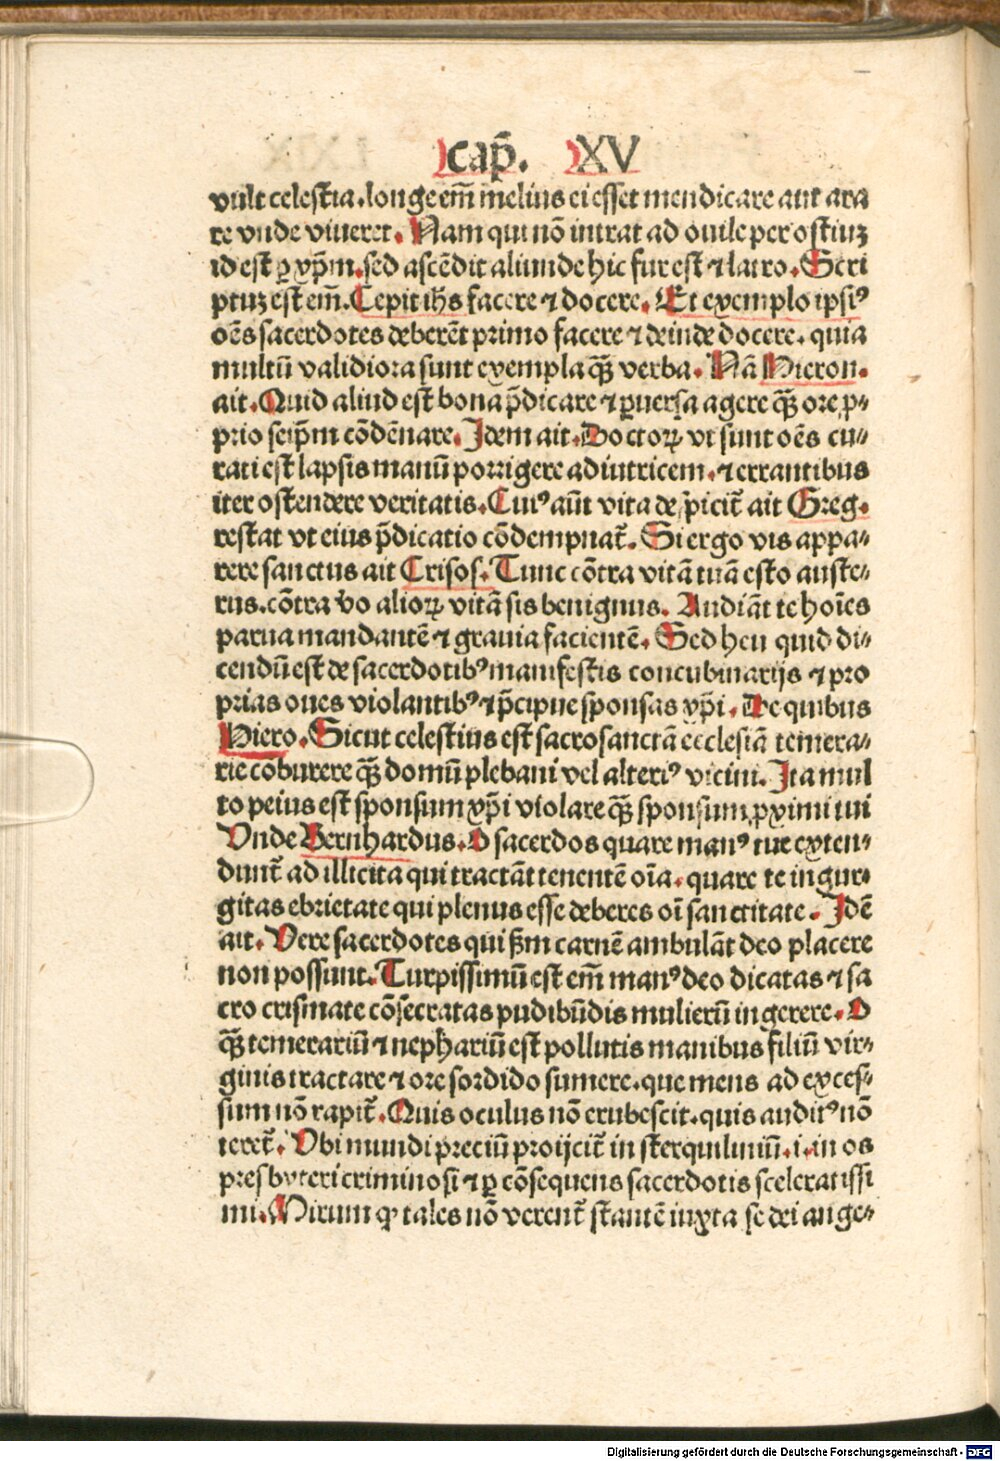 Cap̄. XV
vult celestia.longe em̄ melius ei esset mendicare aut ara
re vnde viueret. Nam qui nō intrat ad ouile per ostiuꝫ
id est ꝑ xp̄m.sed ascēdit aliunde hic fur est ⁊ latro. Scri
ptuꝫ est em̄. Cepit ihs facere ⁊ docere. Et exemplo ipsiꝰ
oēs sacerdotes deberēt primo facere ⁊ deinde docere. quia
multū validiora sunt exempla qꝫ̄ verba. Nā Hieron.
ait. Quid aliud est bona p̄dicare ⁊ ꝑuersa agere qꝫ̄ ore ꝓ⸗
prio seip̄m cōdēnare. Idem ait. Doctoꝝ vt sunt oēs cu⸗
rati est lapsis manū porrigere adiutricem. ⁊ errantibus
iter ostendere veritatis. Cuiꝰ aūt vita despicit̄ ait Greg.
restat vt eius p̄dicatio cōdempnat̄. Si ergo vis appa⸗
rere sanctus ait Crisos. Tunc cōtra vitā tuā esto auste⸗
rus.cōtra v̄o alioꝝ vitā sis benignus. Audiāt te hoīes
parua mandantē ⁊ grauia facientē. Sed heu quid di⸗
cendū est de sacerdotibꝰ manifestis concubinarijs ⁊ pro
prias oues violantibꝰ ⁊ p̄cipue sponsas xp̄i. De quibus
Hiero. Sicut celestius est sacrosanctā ecclesiā temera⸗
rie coburere qꝫ̄ domū plebani vel alteriꝰ vicini. Ita mul
to peius est sponsum xp̄i violare qꝫ̄ sponsum ꝓximi tui
Unde Bernhardus. O sacerdos quare manꝰ tue exten⸗
dunt̄ ad illicita qui tractāt tenentē oīa. quare te ingur⸗
gitas ebrietate qui plenus esse deberes oī sanctitate. Idē
ait. Vere sacerdotes qui ẜm carnē ambulāt deo placere
non possunt. Turpissimū est em̄ manꝰ deo dicatas ⁊ sa
cro crismate cōsecratas pudibūdis mulierū ingerere. O
qꝫ̄ temerariū ⁊ nephariū est pollutis manibus filiū vir⸗
ginis tractare ⁊ ore sordido sumere. que mens ad exces⸗
sum nō rapit̄. Quis oculus nō erubescit. quis auditꝰ nō
teret̄. Ubi mundi preciū proijcit̄ in sterquiliniū.i.in os
presbyteri criminosi ⁊ ꝑ cōsequens sacerdotis sceleratissi
mi. Mirum qꝙ tales nō verent̄ stantē iuxta se dei ange⸗
Digitalisierung gefördert durch die Deutsche Forschungsgemeinschaft - DFG